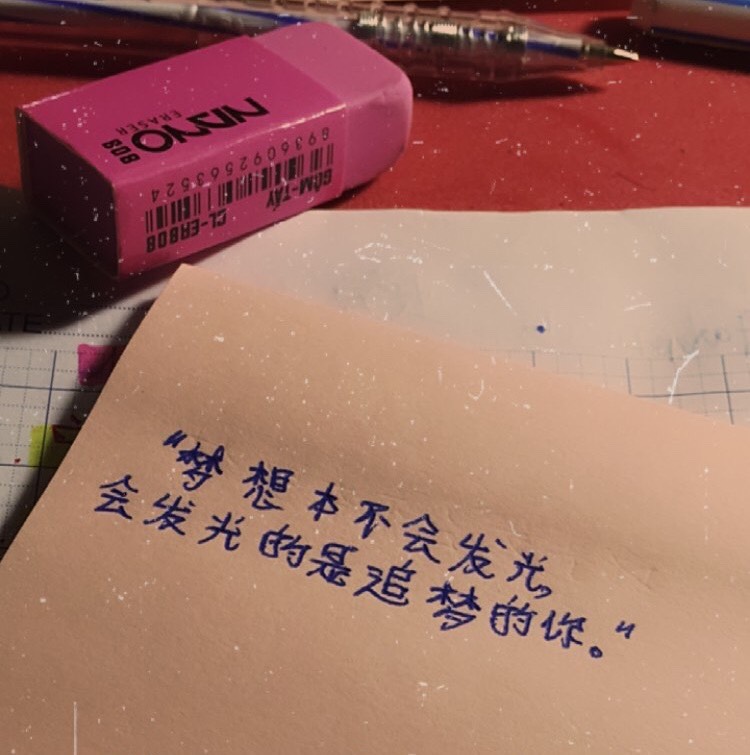 ERASER
808
8936092563524
GÔM-TẨY
CL-ER808
“梦想本不会发光,
会发光的是追梦的你。”